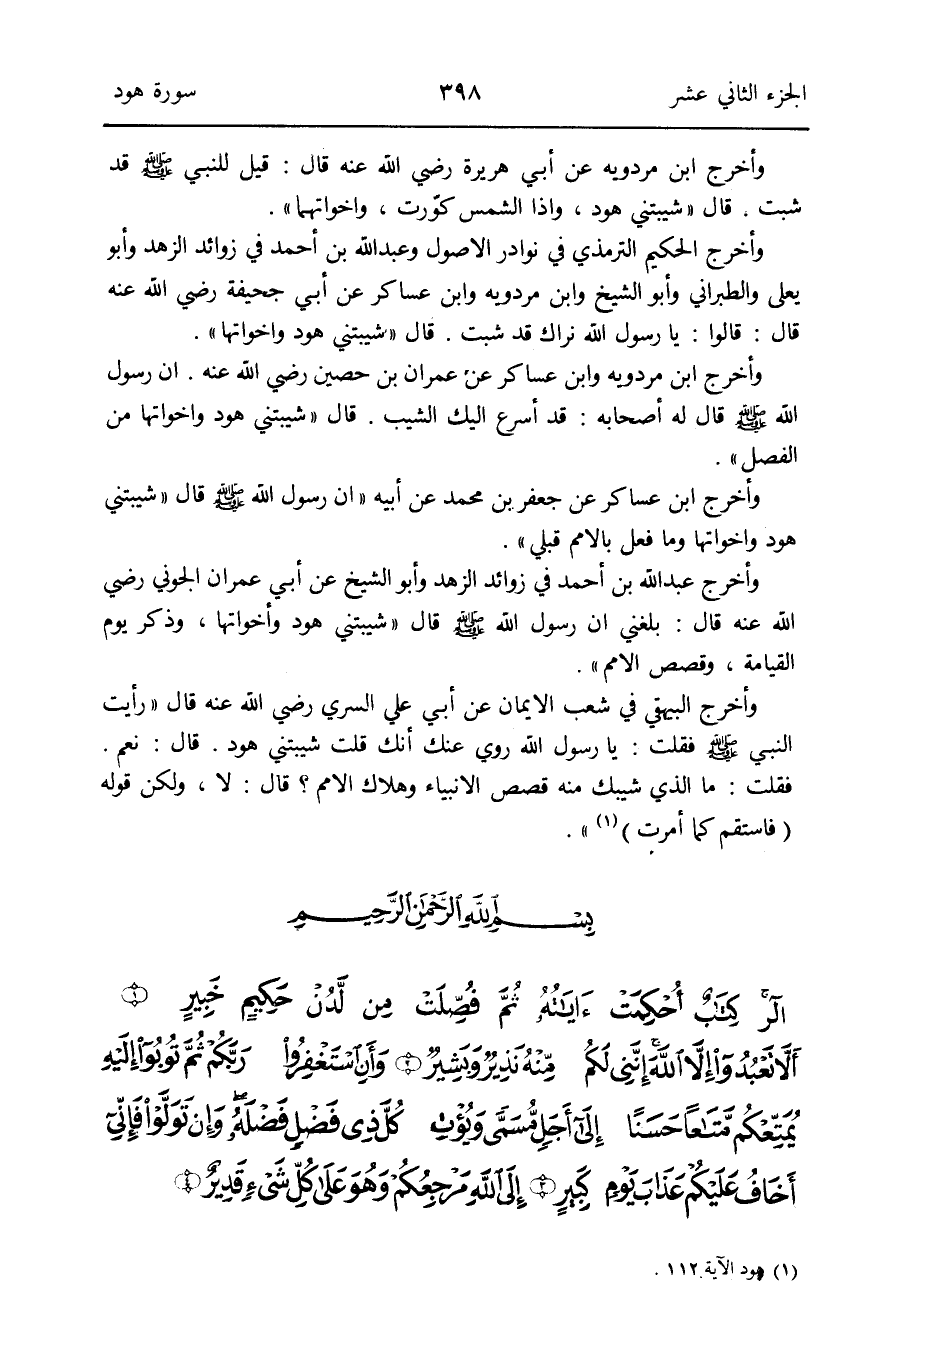 الجزء الثاني عشر ٣٩٨ سورة هود
وأخرج ابن مردويه عن أبي هريرة رضي الله عنه قال : قيل للنبي ﷺ قد
شبت . قال « شيبتني هود ، واذا الشمس كوّرت ، واخواتهما » .
وأخرج الحكيم الترمذي في نوادر الاصول وعبدالله بن أحمد في زوائد الزهد وأبو
يعلى والطبراني وأبو الشيخ وابن مردويه وابن عساكر عن أبي جحيفة رضي الله عنه
قال : قالوا : يا رسول الله نراك قد شبت . قال « شيبتني هود واخواتها » .
وأخرج ابن مردويه وابن عساكر عن عمران بن حصين رضي الله عنه . ان رسول
الله ﷺ قال له أصحابه : قد أسرع اليك الشيب . قال « شيبتني هود واخواتها من
الفصل » .
وأخرج ابن عساكر عن جعفر بن محمد عن أبيه « ان رسول الله ﷺ قال « شيبتني
هود واخواتها وما فعل بالامم قبلي » .
وأخرج عبدالله بن أحمد في زوائد الزهد وأبو الشيخ عن أبي عمران الجوني رضي
الله عنه قال : بلغني ان رسول الله ﷺ قال « شيبتني هود وأخواتها ، وذكر يوم
القيامة ، وقصص الامم » .
وأخرج البيهقي في شعب الايمان عن أبي علي السري رضي الله عنه قال « رأيت
النبي ﷺ فقلت : يا رسول الله روي عنك أنك قلت شيبتني هود . قال : نعم .
فقلت : ما الذي شيبك منه قصص الانبياء وهلاك الامم ؟ قال : لا ، ولكن قوله
( فاستقم كما أمرت ) (١) » .
بِسْمِ ٱللَّهِ ٱلرَّحْمَٰنِ ٱلرَّحِيمِ
الٓرۚ كِتَٰبٌ أُحْكِمَتْ ءَايَٰتُهُۥ ثُمَّ فُصِّلَتْ مِن لَّدُنْ حَكِيمٍ خَبِيرٍ ١
أَلَّا تَعْبُدُوٓا۟ إِلَّا ٱللَّهَۚ إِنَّنِى لَكُم مِّنْهُ نَذِيرٌ وَبَشِيرٌ ٢ وَأَنِ ٱسْتَغْفِرُوا۟ رَبَّكُمْ ثُمَّ تُوبُوٓا۟ إِلَيْهِ
يُمَتِّعْكُم مَّتَٰعًا حَسَنًا إِلَىٰٓ أَجَلٍ مُّسَمًّى وَيُؤْتِ كُلَّ ذِى فَضْلٍ فَضْلَهُۥۖ وَإِن تَوَلَّوْا۟ فَإِنِّىٓ
أَخَافُ عَلَيْكُمْ عَذَابَ يَوْمٍ كَبِيرٍ ٣ إِلَى ٱللَّهِ مَرْجِعُكُمْ وَهُوَ عَلَىٰ كُلِّ شَىْءٍ قَدِيرٌ ٤
(١) هود الآية ١١٢ .